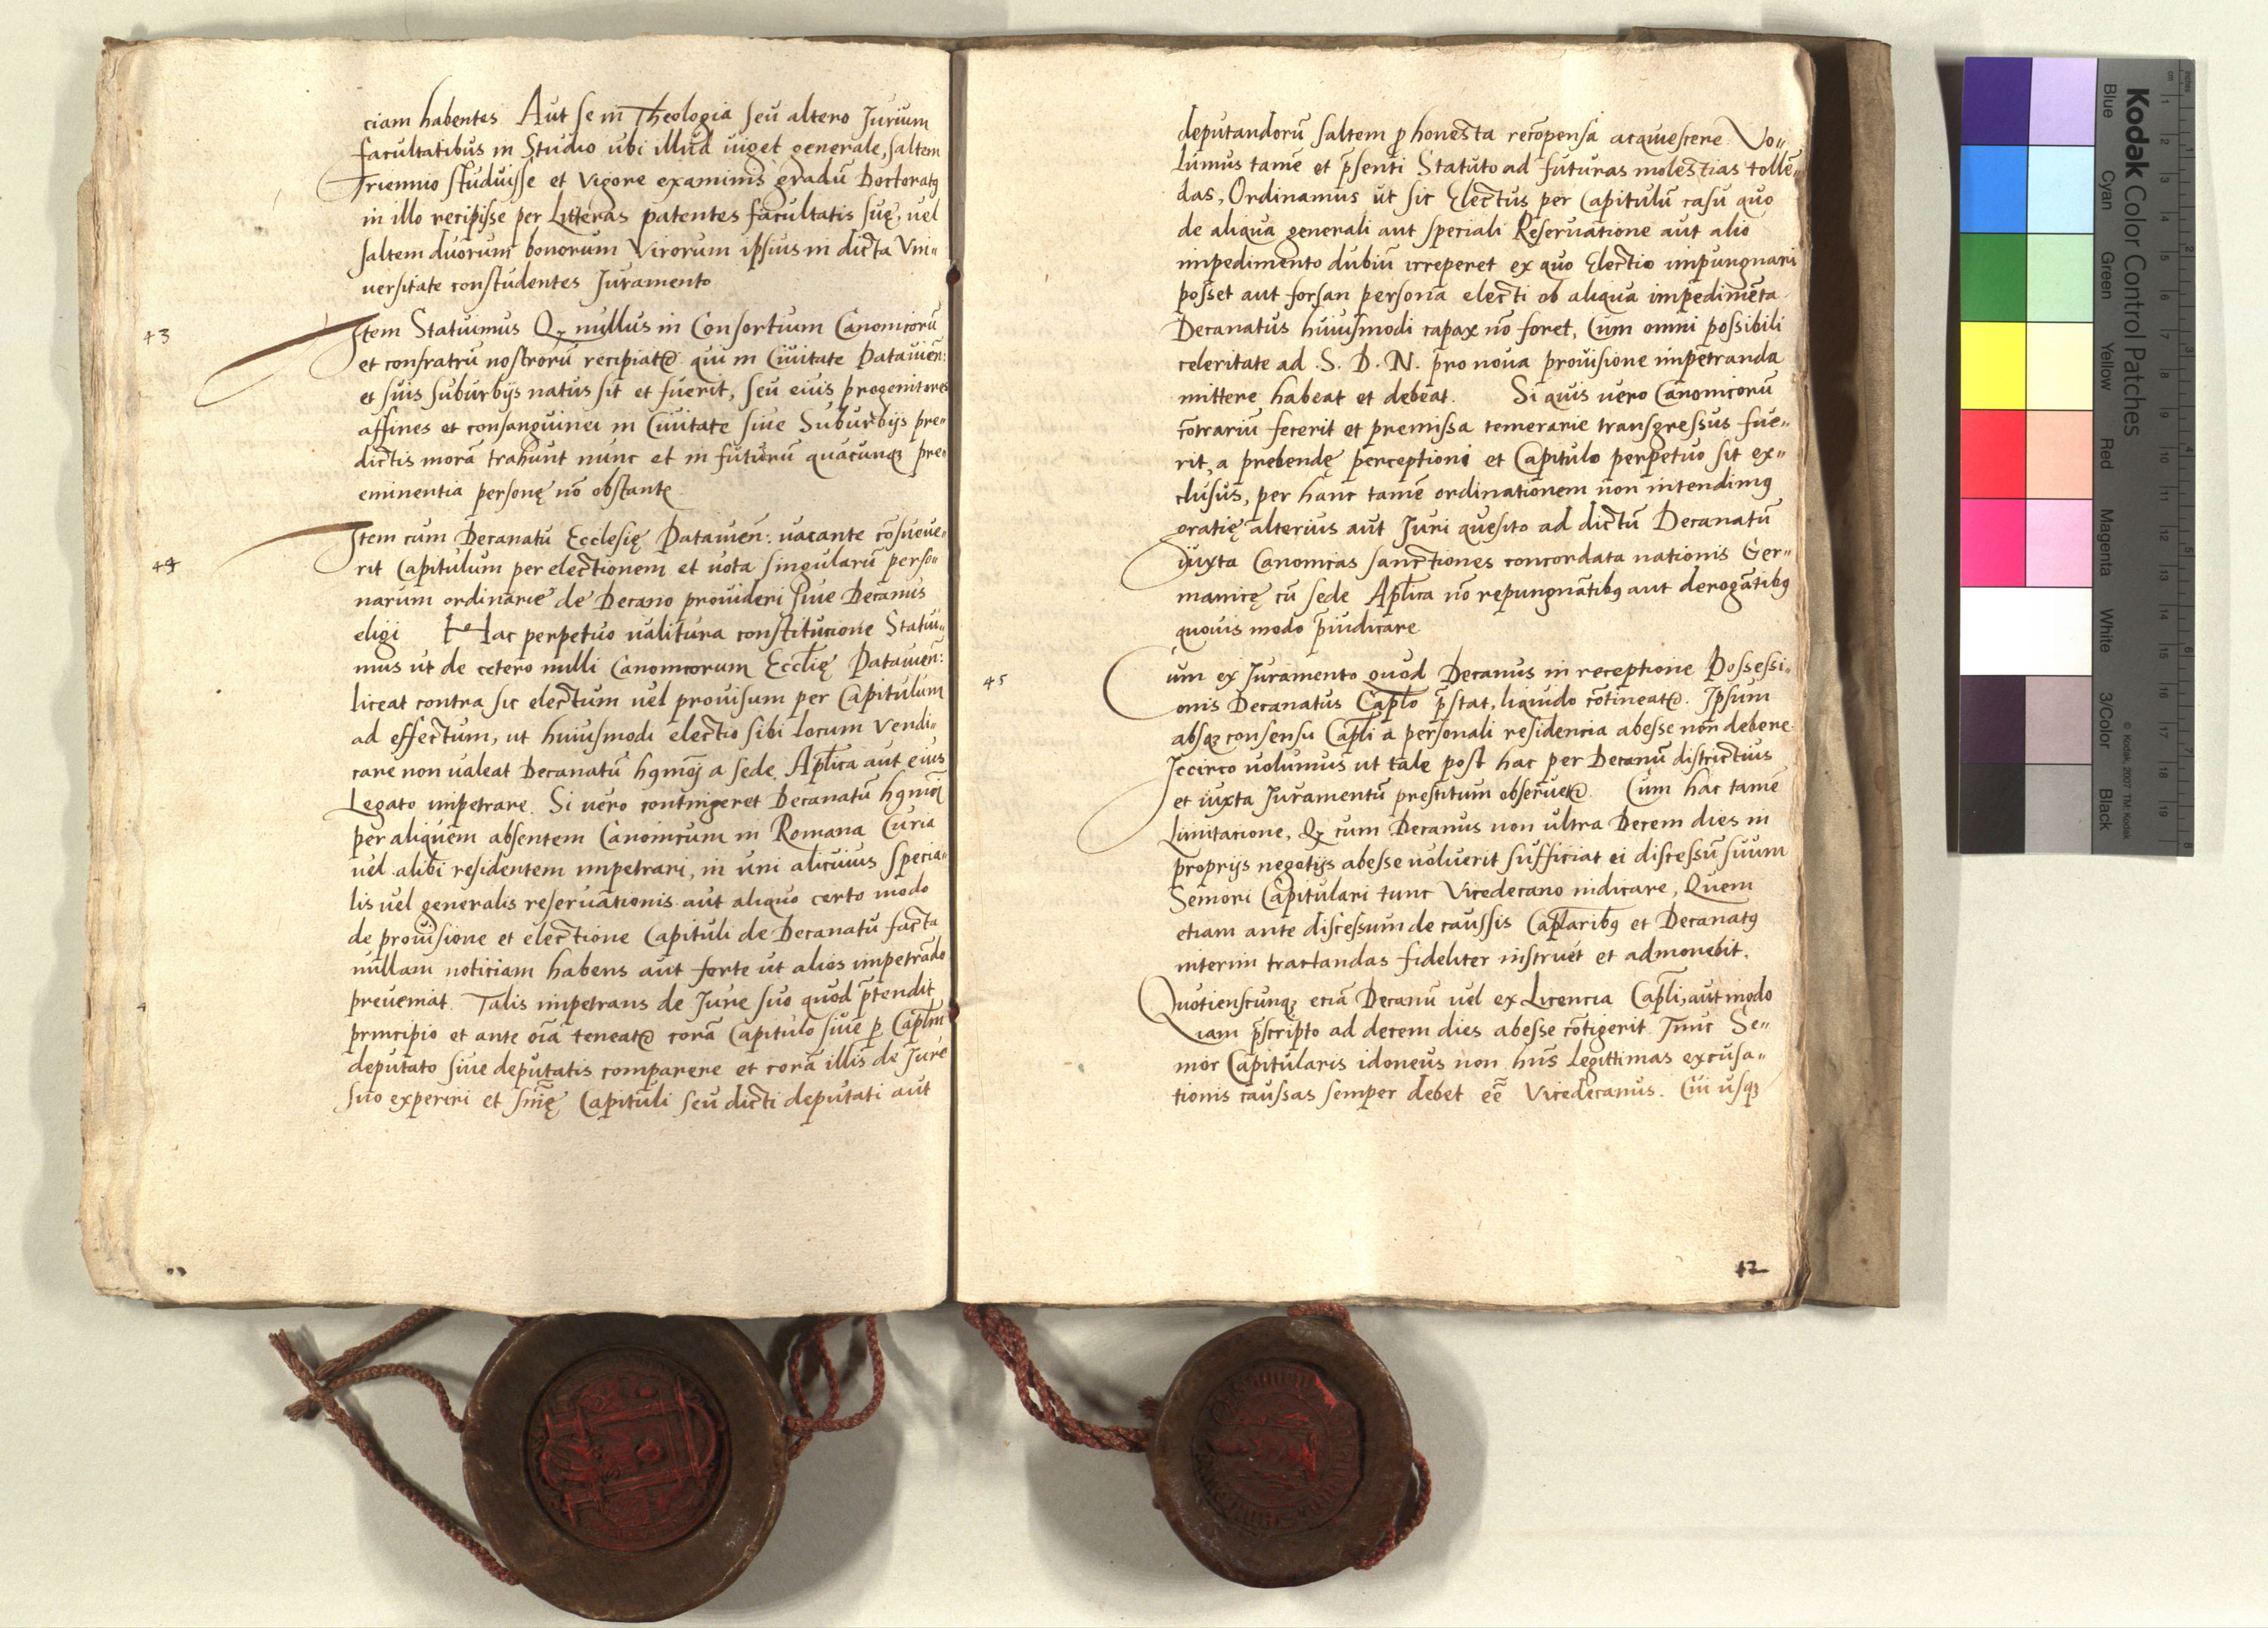 ciam habentes. Aut se in Theologia seu altero Jurium
facultatibus in Studio ubi illud uiget generale, saltem
Triennio studuisse et Vigore examinis gradū Doctoratꝰ
in illo recipisse per Litteras patentes facultatis suę, uel
saltem duorum bonorum Virorum ipsius in dicta Vni„
uersitate constudentes Juramento
43
Item Statuimus Qꝫ nullus in Consortium Canonicorū
et confratrū nostrorū recipiatr qui in Ciuitate Patauien:
et suis suburbijs natus sit et fuerit, seu eius progenitores
affines et consanguinei in Ciuitate siue Suburbijs pre„
dictis morā trahunt nunc et in futurū quacunqꝫ pre„
eminentia personę nō obstante
44
Item cum Decanatu Ecclesię Patauien: uacante cōsueue„
rit Capitulum per electionem et uota singularū perso„
narum ordinarie de Decano prouideri siue Decanus
eligi Hac perpetuo ualitura constitucione Statui„
mus ut de cetero nulli Canonicorum Eccl̄ię Patauien:
liceat contra sic electum uel prouisum per Capitulum
ad effectum, ut huiusmodi electio sibi locum Vendi„
care non ualeat Decanatū hꝰmōj a sede Aplica aut eius
Legato impetrare. Si uero contingeret Decanatū hꝰmōj
per aliquem absentem Canonicum in Romana Curia
uel alibi residentem impetrari, in uni alicuius specia„
lis uel generalis reseruationis aut aliquo certo modo
de prouisione et electione Capituli de Decanatu facta
nullam noticiam habens aut forte ut alios impetrādo
preueniat. Talis impetrans de Jure suo quod p̄tendit
principio et ante oīa teneatr corā Capitulo siue ꝑ Capl̄m
deputato siue deputatis comparere et corā illis de Jure
suo experiri et sn̄ię Capituli seu dicti deputati aut
deputandorū saltem ꝓ honesta recōpensa acquiescere Vo„
lumus tamē et p̄senti Statuto ad futuras molestias tollē„
das, Ordinamus ut sic Electus per Capitulū casu quo
de aliqua generali aut speciali Reseruatione aut alio
impedimento dubiū irreperet ex quo Electio impungnari
posset aut forsan persona electi ob aliqua impedimēta
Decanatus huiusmodi capax nō foret, Cum omni possibili
celeritate ad .S. D. N. pro noua prouisione impetranda
mittere habeat et debeat. Si quis uero Canonicorū
cōtrariū fecerit et premissa temerarie transgressus fue„
rit, a prebendę perceptioni et Capitulo perpetuo sit ex„
clusus, per hanc tamē ordinationem non intendimꝰ
gratię alterius aut Juri quesito ad dictū Decanatū
iuxta Canonicas sanctiones concordata nationis Ger„
manicę cū sede Aplica nō repungnātibꝰ aut derogātibꝰ
quouis modo p̄iudicare
45
Cum ex Juramento quod Decanus in receptione Possessi„
onis Decanatus Caplo p̄stat, liquido cōtineatr. Ipsum
absqꝫ consensu Capli a personali residencia abesse non debere
Iccirco uolumus ut tale post hac per Decanū districtius
et iuxta Juramentū prestitum obseruetr. Cum hac tamē
Limitacione, Qꝫ cum Decanus non ultra Decem dies in
proprijs negotijs abesse uoluerit sufficiat ei discessū suum
Seniori Capitulari tunc Vicedecano indicare, Quem
etiam ante discessum de caussis Caplaribꝰ et Decanatꝰ
interim tractandas fideliter instruet et admonebit.
Quotienscunqꝫ eciā Decanū uel ex Licencia Capli, aut modo
iam p̄scripto ad decem dies abesse cōtigerit. Tunc Se„
nior Capitularis idoneus non hn̄s legittimas excusa„
tionis caussas semper debet eē̄ Vicedecanus. Cui usqꝫ
12
Kodak Color Control Patches
Blue Cyan Green Yellow Red Magenta White 3/Color Black
© Kodak, 2007 TM: Kodak
cm 1 2 3 4 5 6 7 8 9 10 11 12 13 14 15 16 17 18 19
inches 1 2 3 4 5 6 7 8